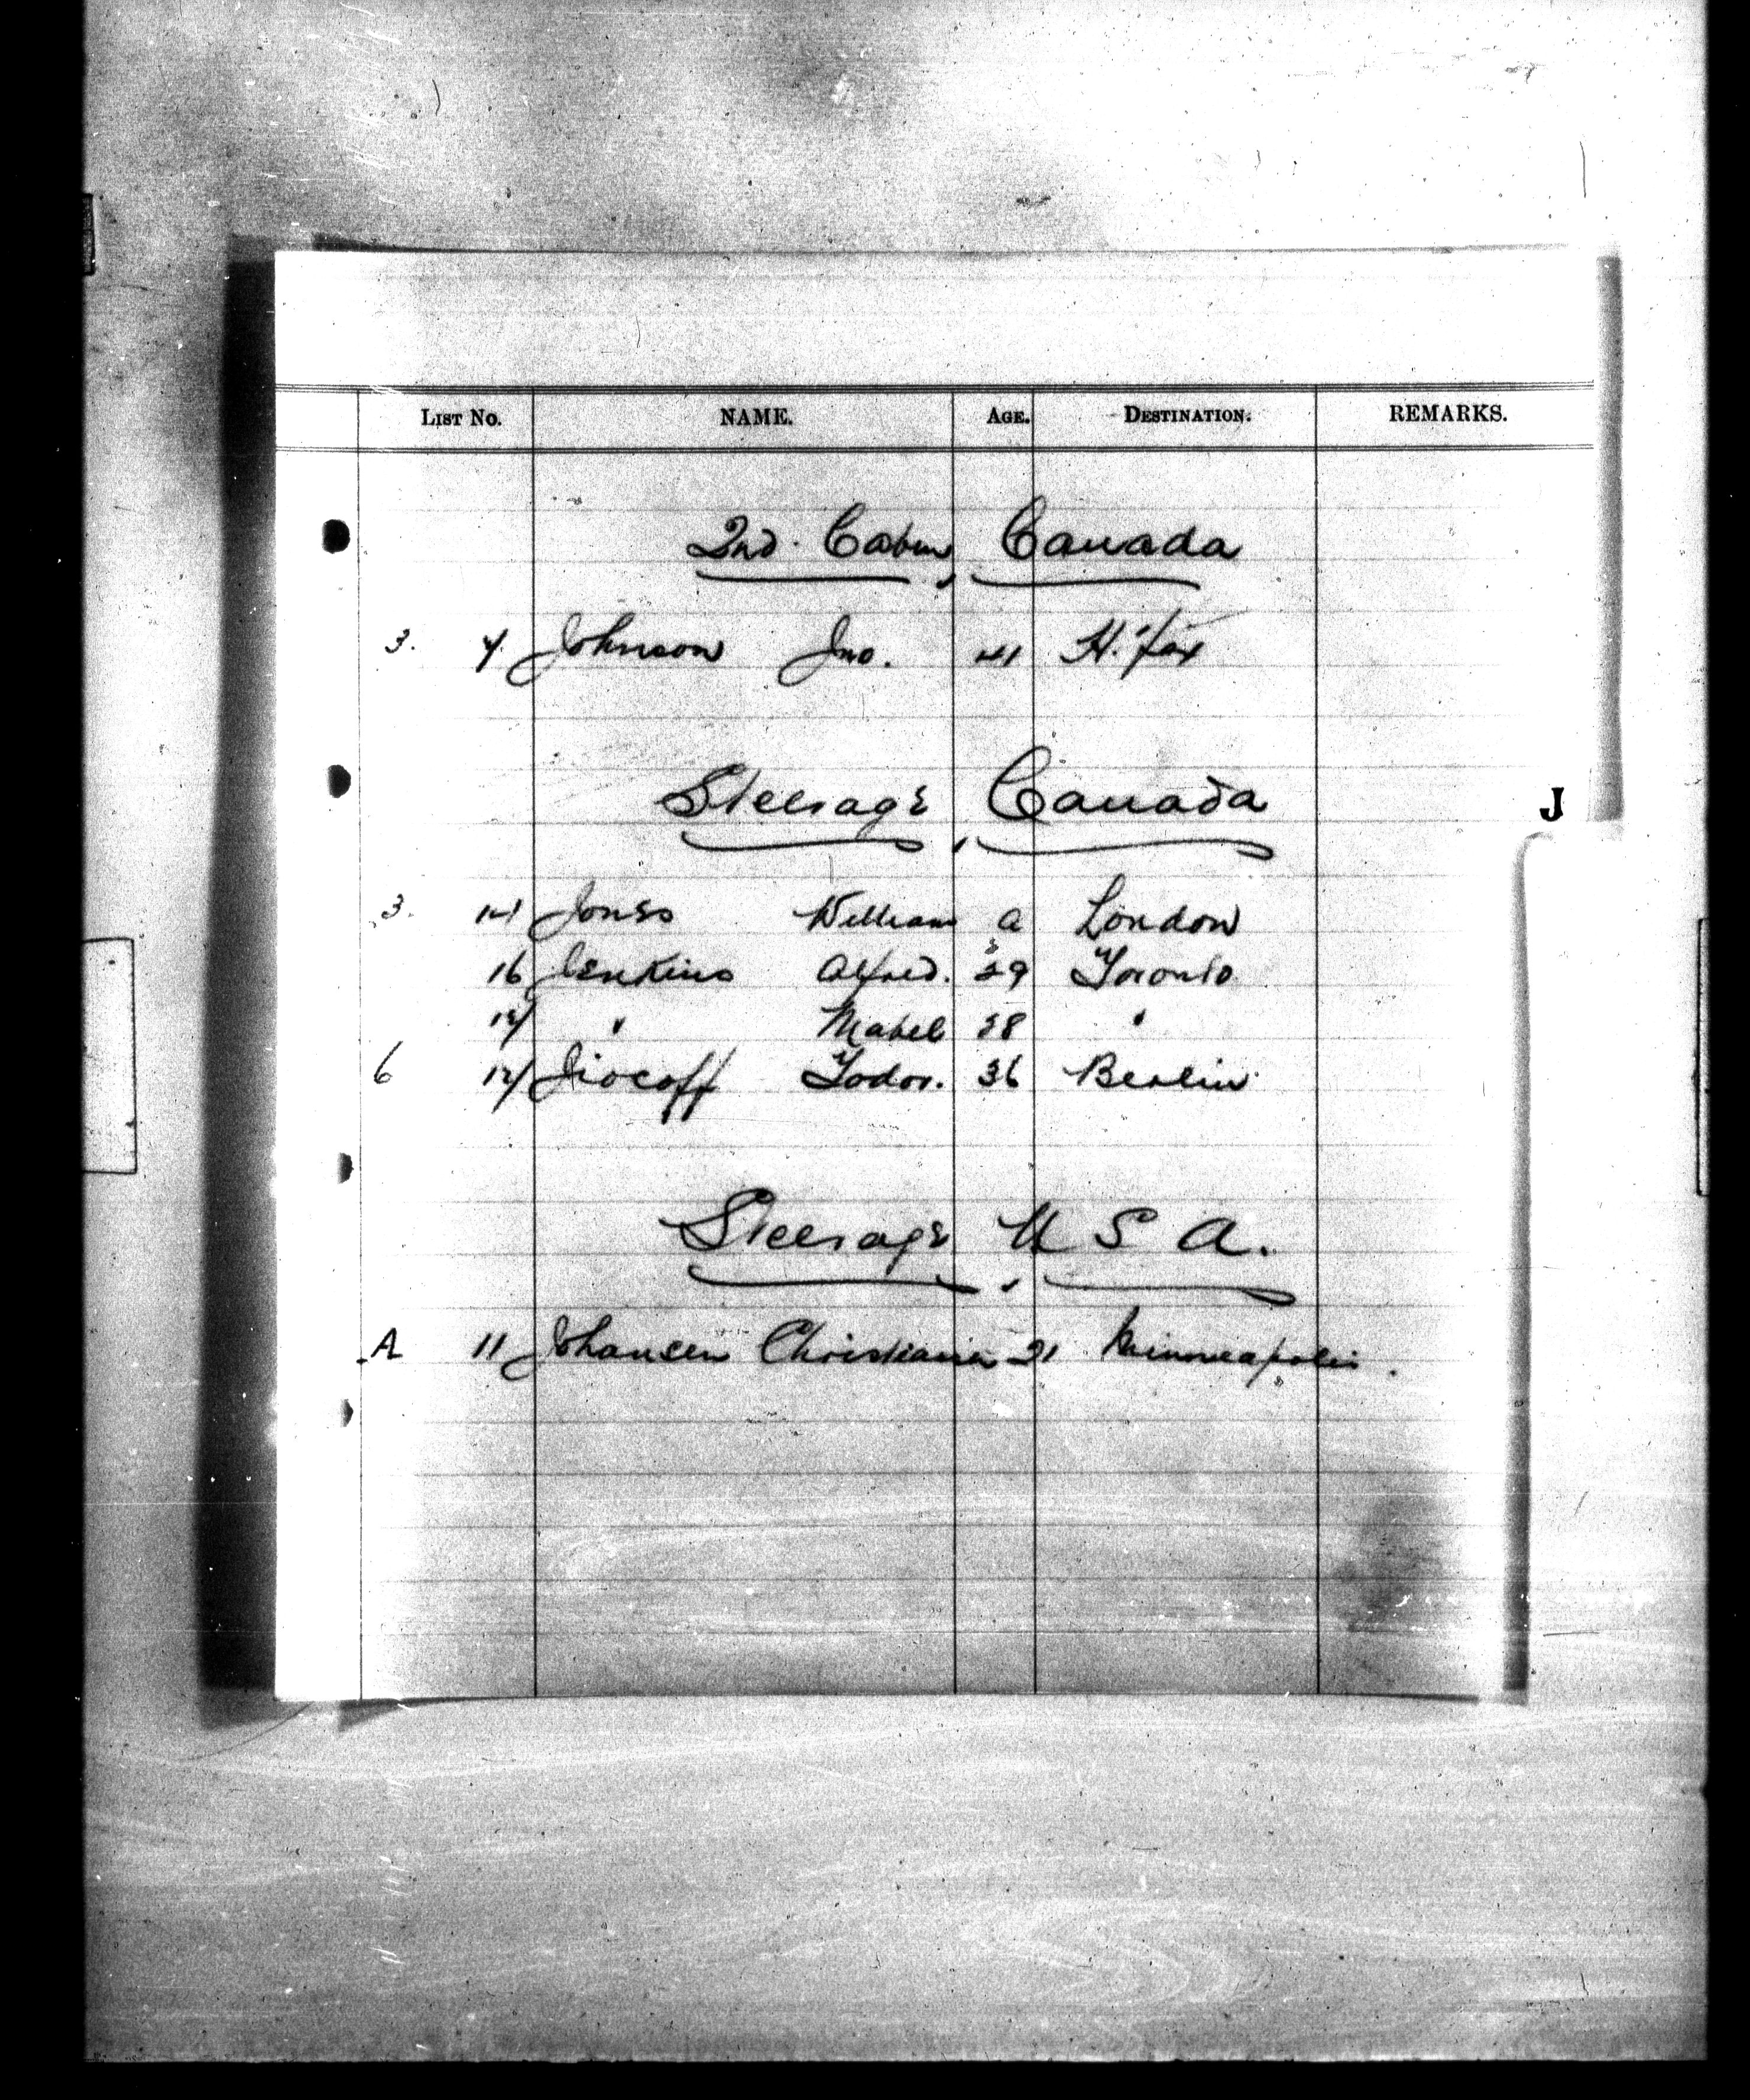 LIST No. NAME. AGE. DESTINATION. REMARKS.
2nd. Cabin, Canada
3. Johnson Jno. 41 H.'fax
Steerage, Canada
J
3. Jones William a London
16 Jenkins Alfred. 29 Toronto
" Mabel 28 "
6 Jiocoff Todor. 36 Berlin
Steerage, U S A.
A 11 Johansen Christiania 21 Minneapolis.